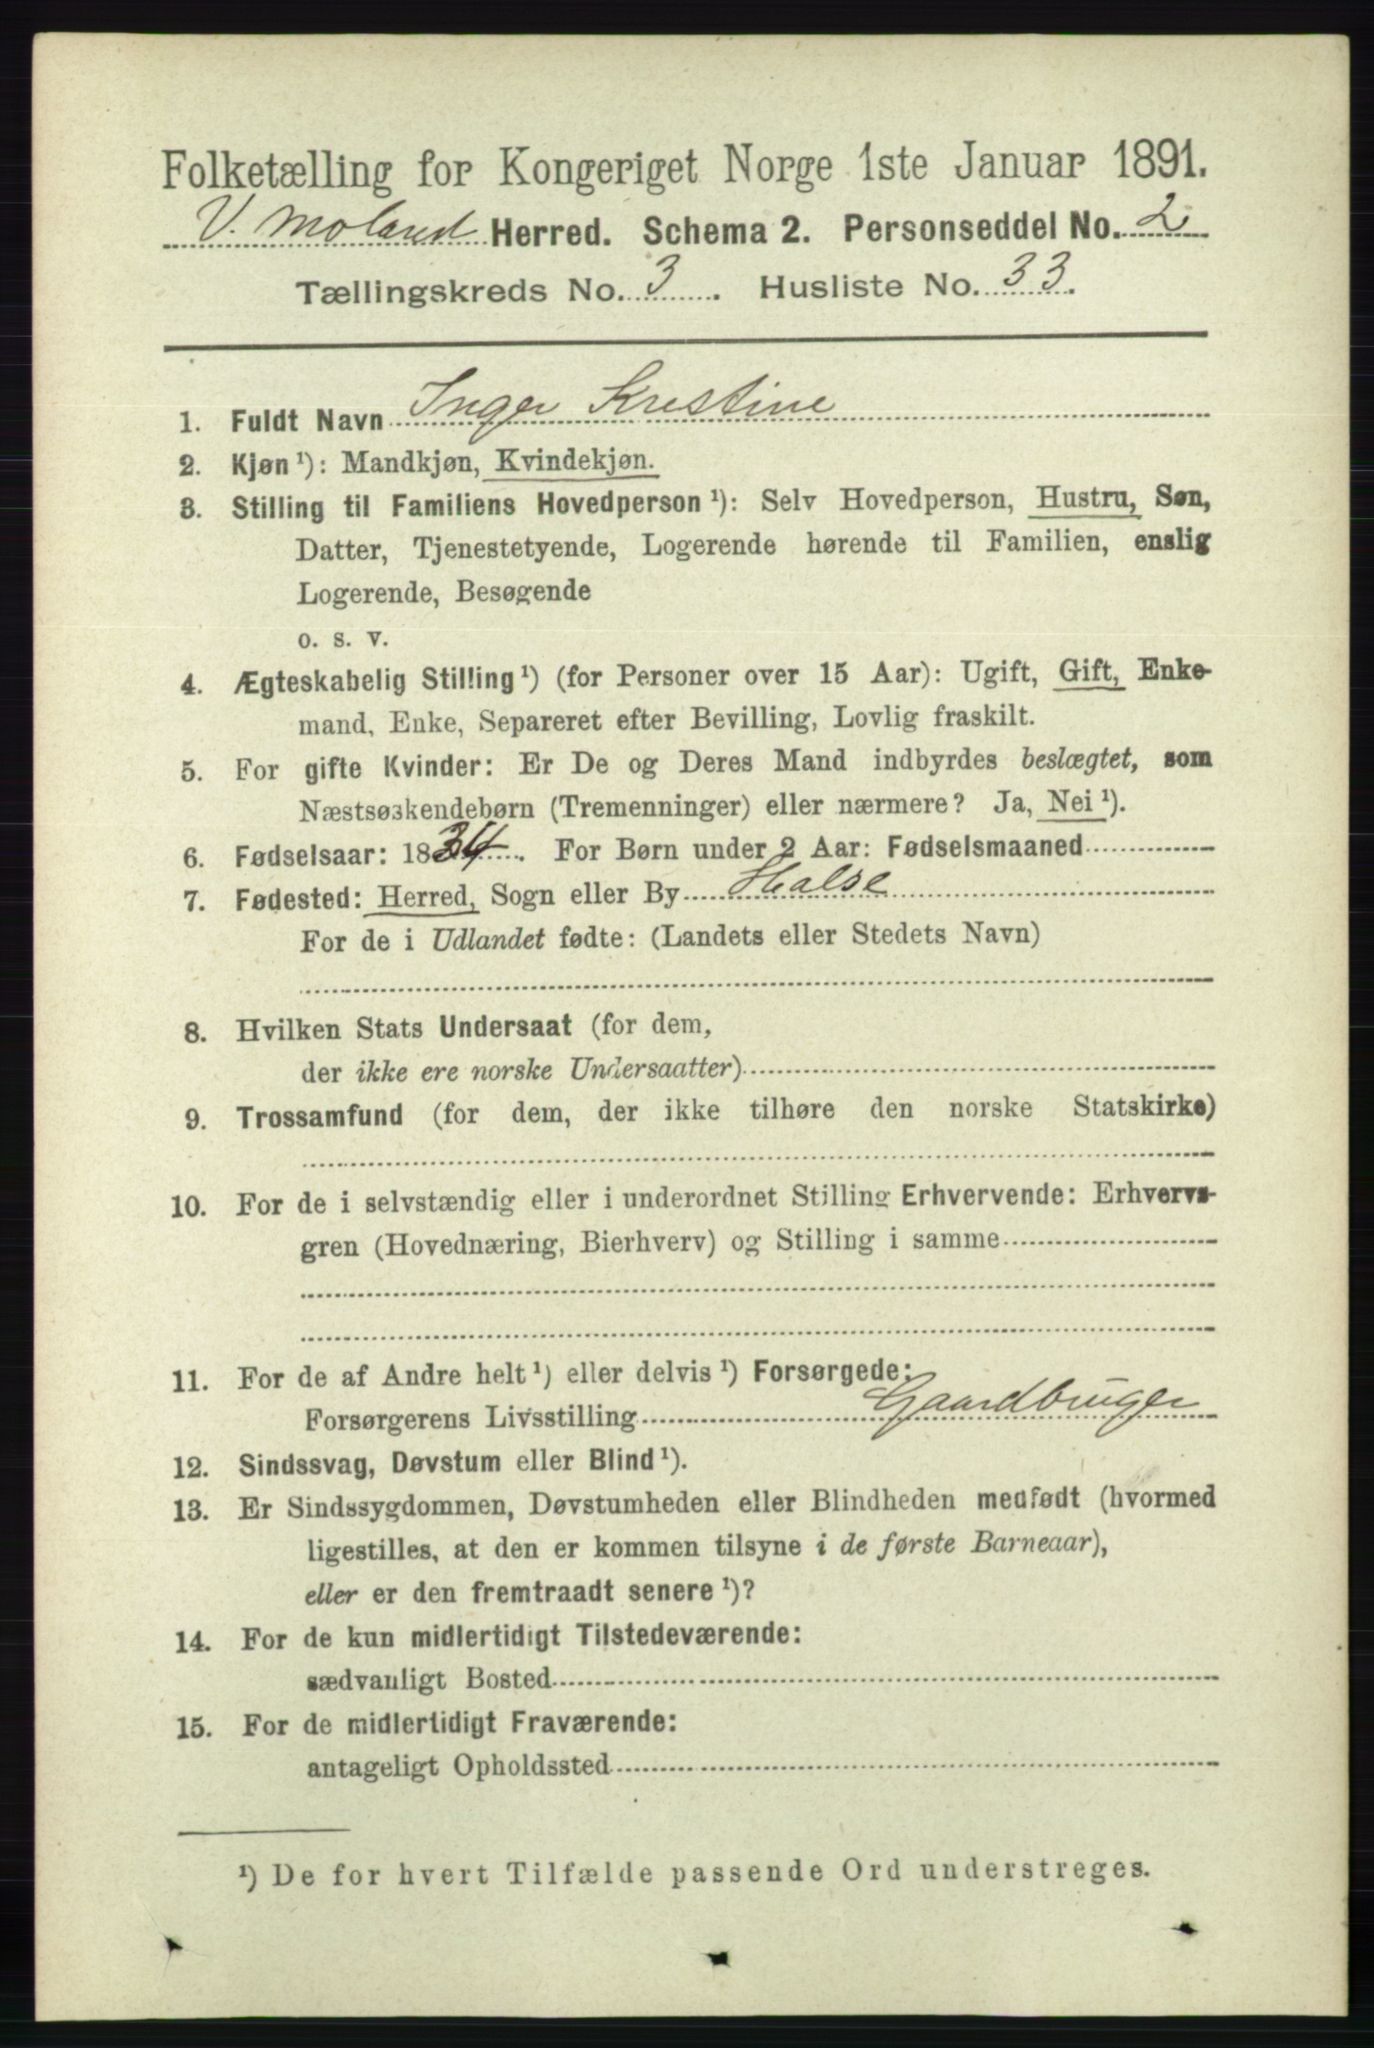 Folketælling for Kongeriget Norge 1ste Januar 1891.
V. Moland Herred. Schema 2. Personseddel No. 2
Tællingskreds No. 3. Husliste No. 33.
1. Fuldt Navn Inger Krestine
2. Kjøn¹): Mandkjøn, Kvindekjøn.
3. Stilling til Familiens Hovedperson¹): Selv Hovedperson, Hustru, Søn,
Datter, Tjenestetyende, Logerende hørende til Familien, enslig
Logerende, Besøgende
o. s. v.
4. Ægteskabelig Stilling¹) (for Personer over 15 Aar): Ugift, Gift, Enke-
mand, Enke, Separeret efter Bevilling, Lovlig fraskilt.
5. For gifte Kvinder: Er De og Deres Mand indbyrdes beslægtet, som
Næstsøskendebørn (Tremenninger) eller nærmere? Ja, Nei¹).
6. Fødselsaar: 1834. For Børn under 2 Aar: Fødselsmaaned
7. Fødested: Herred, Sogn eller By Halse
For de i Udlandet fødte: (Landets eller Stedets Navn)
8. Hvilken Stats Undersaat (for dem,
der ikke ere norske Undersaatter)
9. Trossamfund (for dem, der ikke tilhøre den norske Statskirke)
10. For de i selvstændig eller i underordnet Stilling Erhvervende: Erhvervs-
gren (Hovednæring, Bierhverv) og Stilling i samme
11. For de af Andre helt¹) eller delvis¹) Forsørgede:
Forsørgerens Livsstilling Gaardbruger
12. Sindssvag, Døvstum eller Blind¹).
13. Er Sindssygdommen, Døvstumheden eller Blindheden medfødt (hvormed
ligestilles, at den er kommen tilsyne i de første Barneaar),
eller er den fremtraadt senere¹)?
14. For de kun midlertidigt Tilstedeværende:
sædvanligt Bosted
15. For de midlertidigt Fraværende:
antageligt Opholdssted
¹) De for hvert Tilfælde passende Ord understreges.